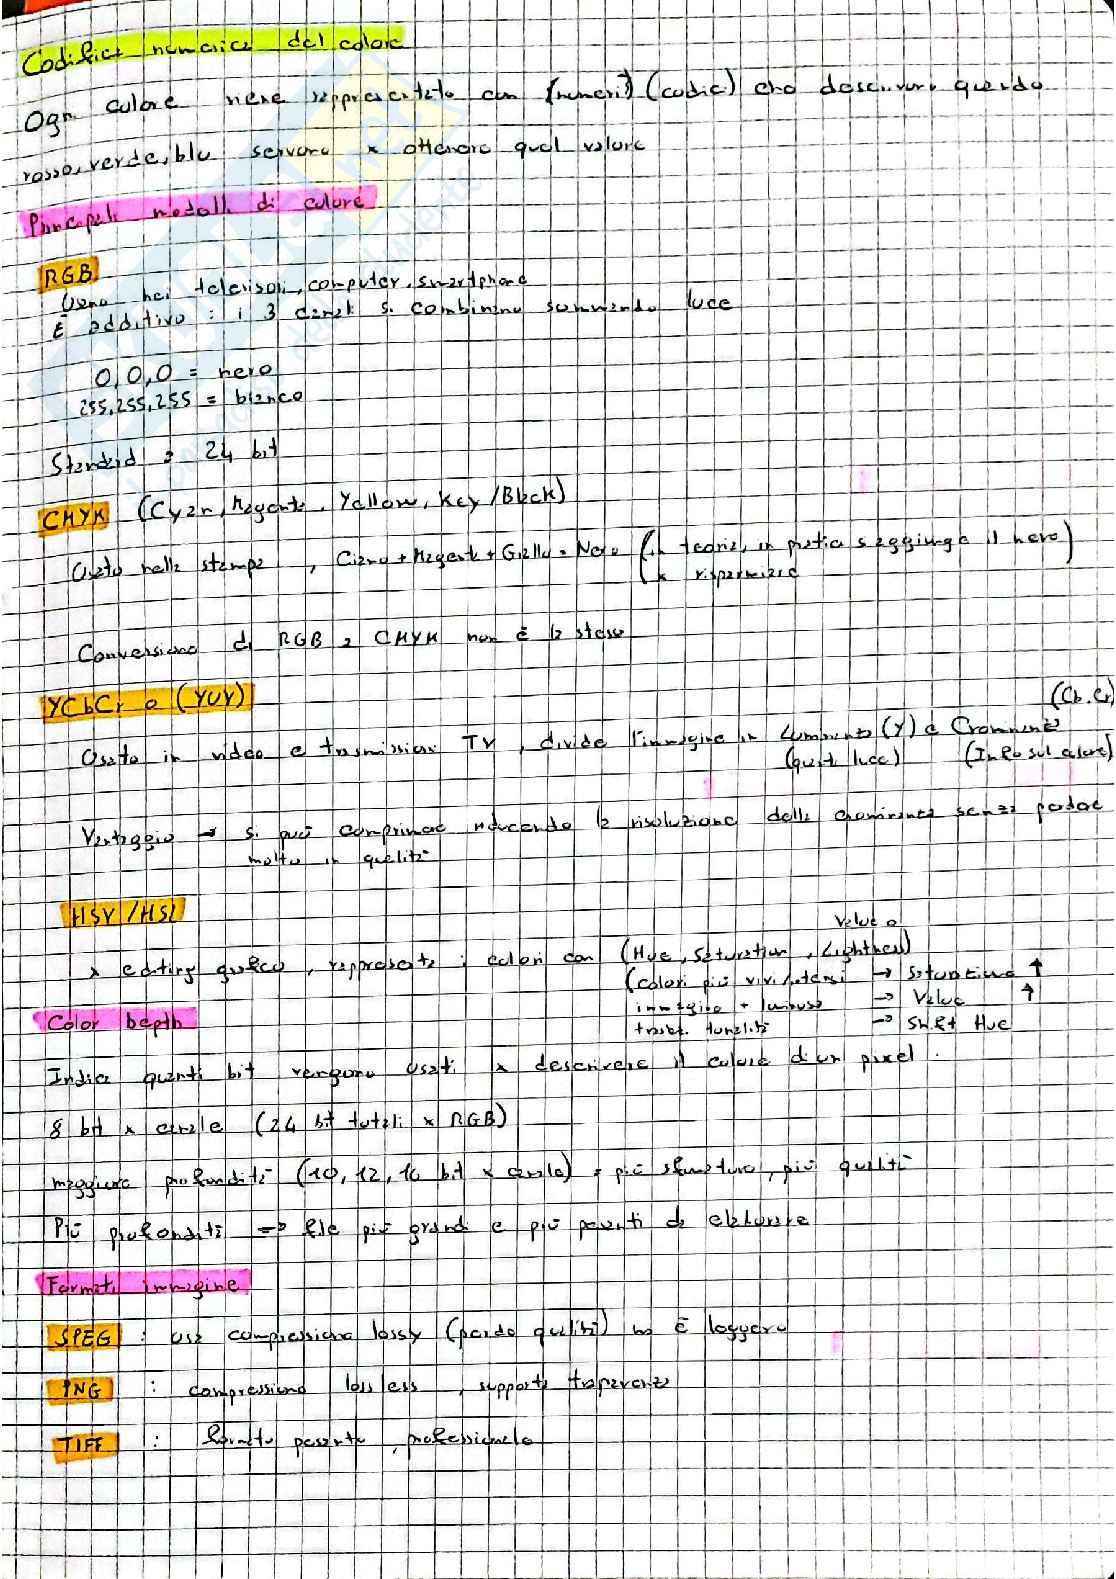 Codifica numerica del colore
Ogni colore viene rappresentato con (numeri) (codici) che descrivono quando
rosso, verde, blu servono x ottenere quel valore
Principali modelli di colore
RGB
Usano nei televisori, computer, smartphone
È additivo : i 3 canali si combinano sommando luce
0,0,0 = nero
255,255,255 = bianco
Standard = 24 bit
CMYK (Cyan, Magenta, Yellow, Key/Black)
Usato nella stampa , Ciano + Magenta + Giallo = Nero (in teoria, in pratica si aggiunge il nero)
x risparmiare
Conversione di RGB a CMYK non è la stessa
YCbCr o (YUV)
(Cb, Cr)
Usato in video e trasmissioni TV , divide l'immagine in Luminanza (Y) e Crominanza
(quanta luce) (Info sul colore)
Vantaggio → si può comprimere riducendo la risoluzione della crominanza senza perdere
molto in qualità
HSV/HSL
Value o
x editing grafico , rappresenta i colori con (Hue, Saturation, Lightness)
(colori più vivi/intensi → Saturation ↑
immagine + luminosa → Value ↑
tonalità → Shift Hue
Color Depth
Indica quanti bit vengono usati x descrivere il colore di un pixel .
8 bit x canale (24 bit totali x RGB)
maggiore profondità (10, 12, 16 bit x canale) = più sfumature, più qualità
Più profondità => file più grandi e più pesanti da elaborare
Formati immagine
JPEG : usa compressione lossy (perde qualità) ma è leggero
PNG : compressione lossless , supporta trasparenza
TIFF : formato pesante , professionale